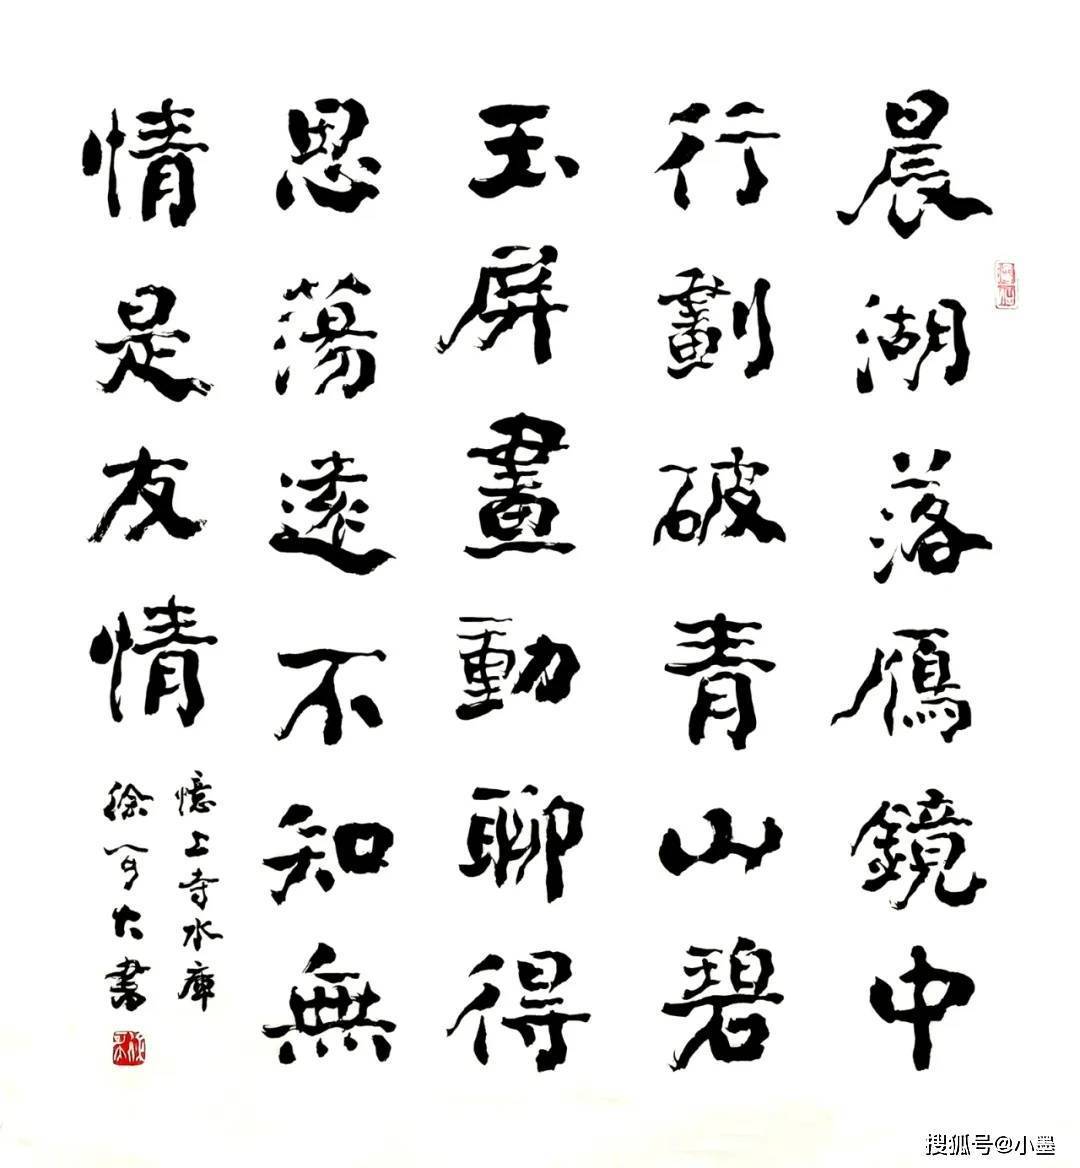 晨湖落鴈鏡中
行劃破青山碧
玉屏畫動聊得
思蕩遠不知無
情是友情
憶上寺水庫
徐大書
搜狐号@小墨